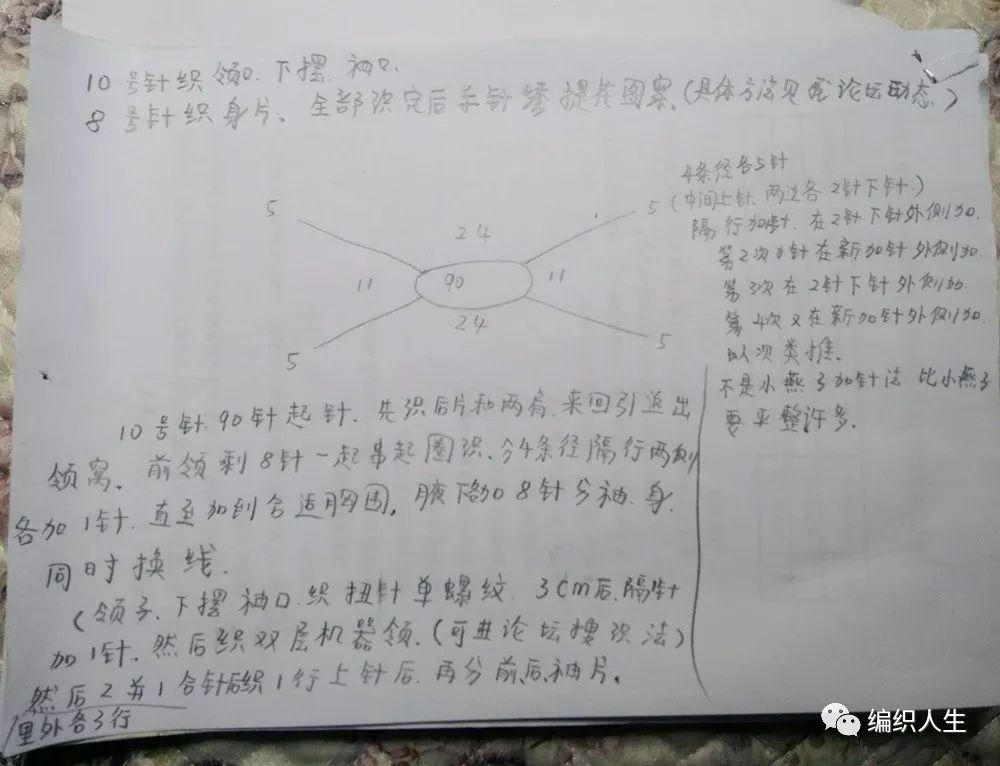 10号针织领口.下摆.袖口.
8号针织身片、全部织完后手针绣提花图案.(具体方法见我论坛动态)
4条径各5针
(中间上针、两边各2针下针.)
隔行加针.在2针下针外侧加.
第2次加针在新加针外侧加.
第3次在2针下针外侧加
第4次又在新加针外侧加.
以次类推.
不是小燕子加针法 比小燕子
要平整许多.
5
24
5
11
90
11
24
5
5
10号针.90针起针.先织后片和两肩.来回引返出
领窝.前领剩8针一起串起圈织.分4条径隔行两侧
各加1针.直至加到合适胸围,腋下各加8针分袖.身.
同时换线.
(领子、下摆袖口.织扭针单螺纹.3cm后.隔针
加1针.然后织双层机器领.(可进论坛搜织法)
然后2并1合针后织1行上针后.再分前、后、袖片.
里外各3行
编织人生